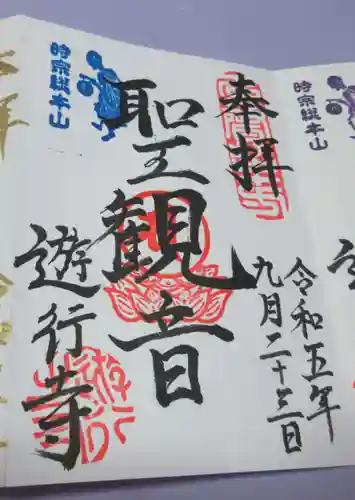 奉拝
令和五年
九月二十三日
聖観音
時宗総本山
遊行寺
時宗総本山